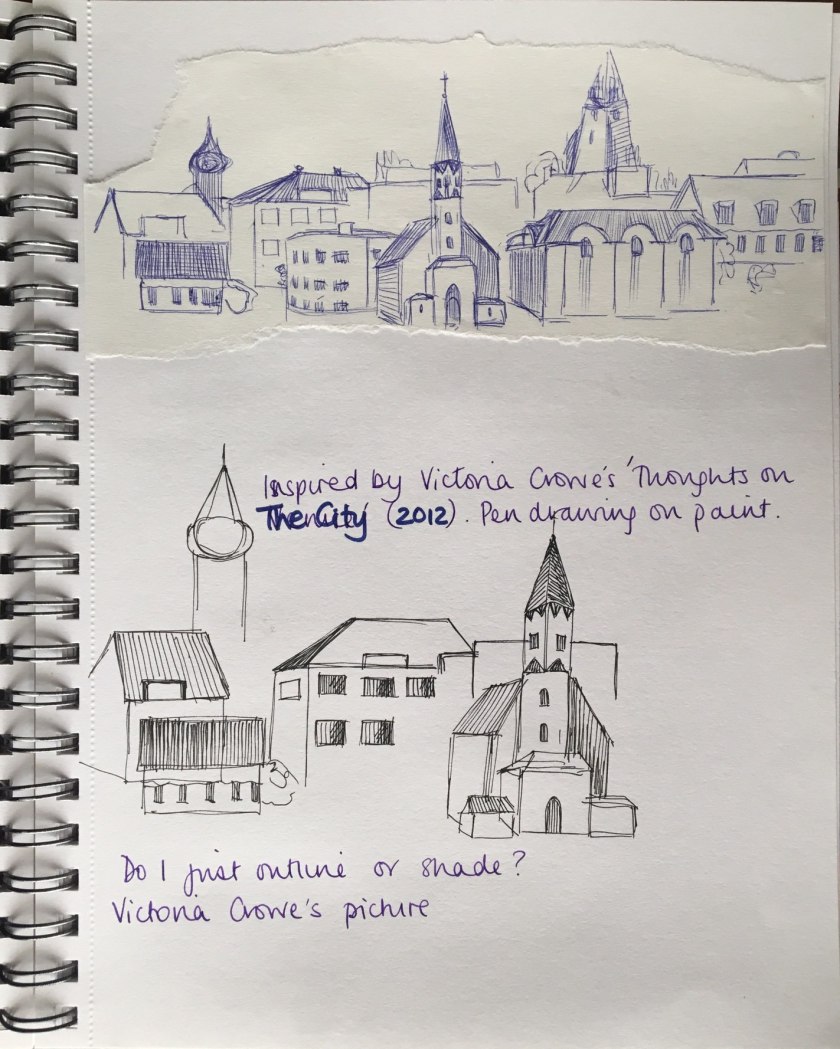 Inspired by Victoria Crowe's 'Thoughts on
The City (2012). Pen drawing on paint.
Do I just outline or shade?
Victoria Crowe's picture